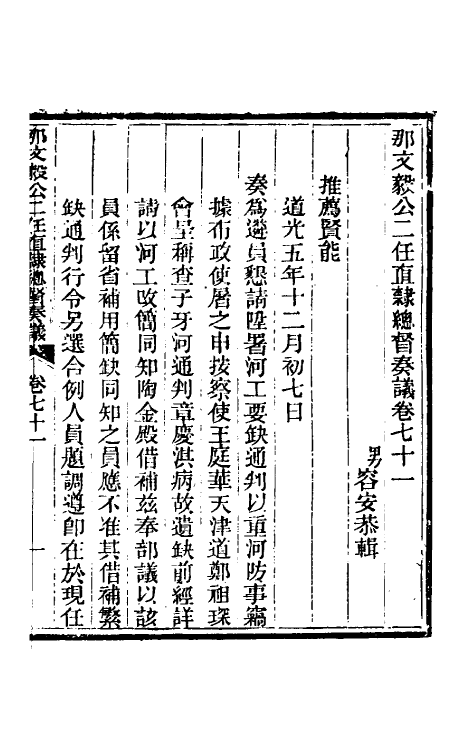 那文毅公二任直隸總督奏議卷七十一
男容安恭輯
推薦賢能
道光五年十二月初七日
奏為遴員懇請陞署河工要缺通判以重河防事竊
據布政使屠之申按察使王庭華天津道鄭祖琛
會呈稱查子牙河通判章慶淇病故遺缺前經詳
請以河工改簡同知陶金殿借補茲奉部議以該
員係留省補用簡缺同知之員應不准其借補繁
缺通判行令另選合例人員題調遵卽在於現任
那文毅公二任直隸總督奏議 卷七十一 一